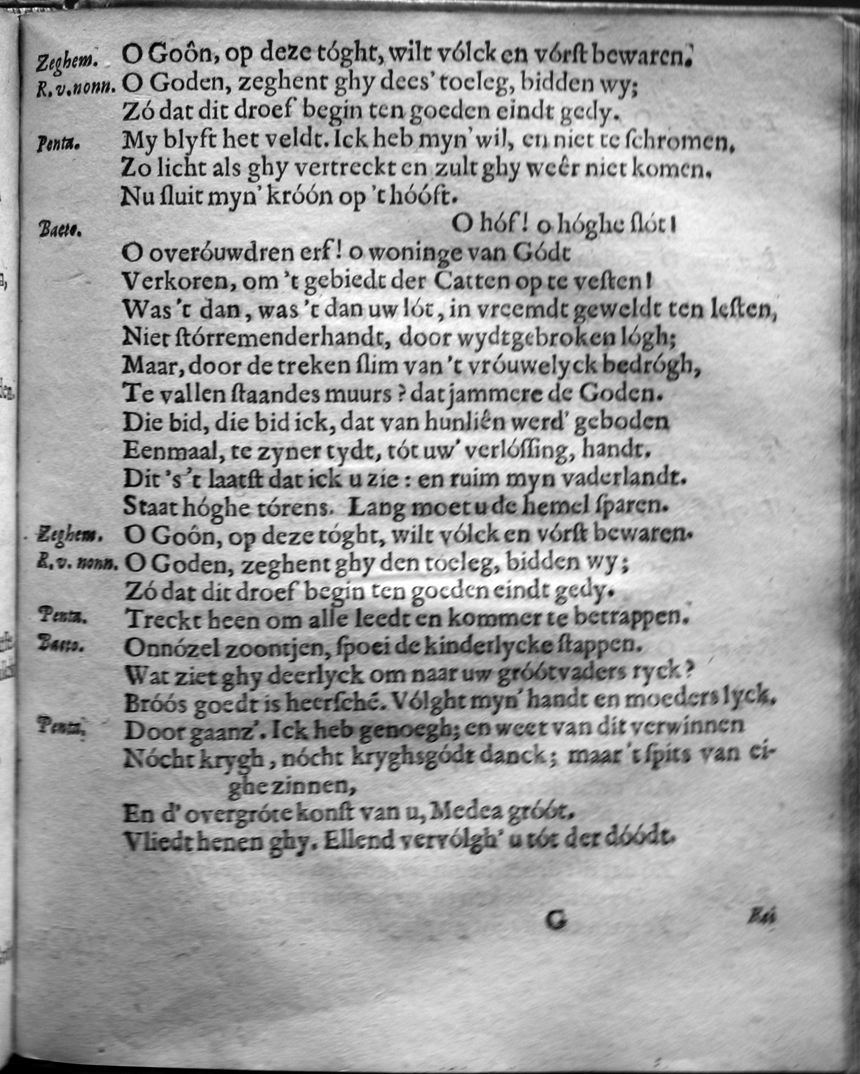 Zeghem. O Goôn, op deze tóght, wilt vólck en vórſt bewaren.
R. v. nonn. O Goden, zeghent ghy dees' toeleg, bidden wy;
Zó dat dit droef begin ten goeden eindt gedy.
Penta. My blyft het veldt. Ick heb myn' wil, en niet te ſchromen,
Zo licht als ghy vertreckt en zult ghy weêr niet komen.
Nu ſluit myn' króón op 't hóóft.
Baeto. O hóf! o hóghe ſlót!
O overóuwdren erf! o woninge van Gódt
Verkoren, om 't gebiedt der Catten op te veſten!
Was 't dan, was 't dan uw lót, in vreemdt geweldt ten leſten,
Niet ſtórremenderhandt, door wydtgebroken lógh;
Maar, door de treken ſlim van 't vróuwelyck bedrógh,
Te vallen ſtaandes muurs? dat jammere de Goden.
Die bid, die bid ick, dat van hunliên werd' geboden
Eenmaal, te zyner tydt, tót uw' verlóſſing, handt.
Dit 's 't laatſt dat ick u zie: en ruim myn vaderlandt.
Staat hóghe tórens. Lang moet u de hemel ſparen.
Zeghem. O Goôn, op deze tóght, wilt vólck en vórſt bewaren.
R. v. nonn. O Goden, zeghent ghy den toeleg, bidden wy;
Zó dat dit droef begin ten goeden eindt gedy.
Penta. Treckt heen om alle leedt en kommer te betrappen.
Baeto. Onnózel zoontjen, ſpoei de kinderlycke ſtappen.
Wat ziet ghy deerlyck om naar uw gróótvaders ryck?
Bróós goedt is heerſché. Vólght myn' handt en moeders lyck.
Penta. Door gaanz'. Ick heb genoegh; en weet van dit verwinnen
Nócht krygh, nócht kryghsgódt danck; maar 't ſpits van ei-
ghe zinnen,
En d' overgróte konſt van u, Medea gróót.
Vliedt henen ghy. Ellend vervólgh' u tót der dóódt.
G